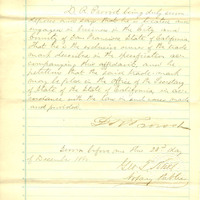 being duly sworn
deposes and says that he is a
engaged in business in the City and
County of San Francisco State of California
that he is the exclusive owner of the trade
mark described in the declaration ac-
companying this affidavit and he
petitions that the said trade mark
may be filed in the office of the Secretary
of State of the State of California in ac-
cordance with the law in such case made
and provided.
Sworn before me this 28th day
of December
Notary Public